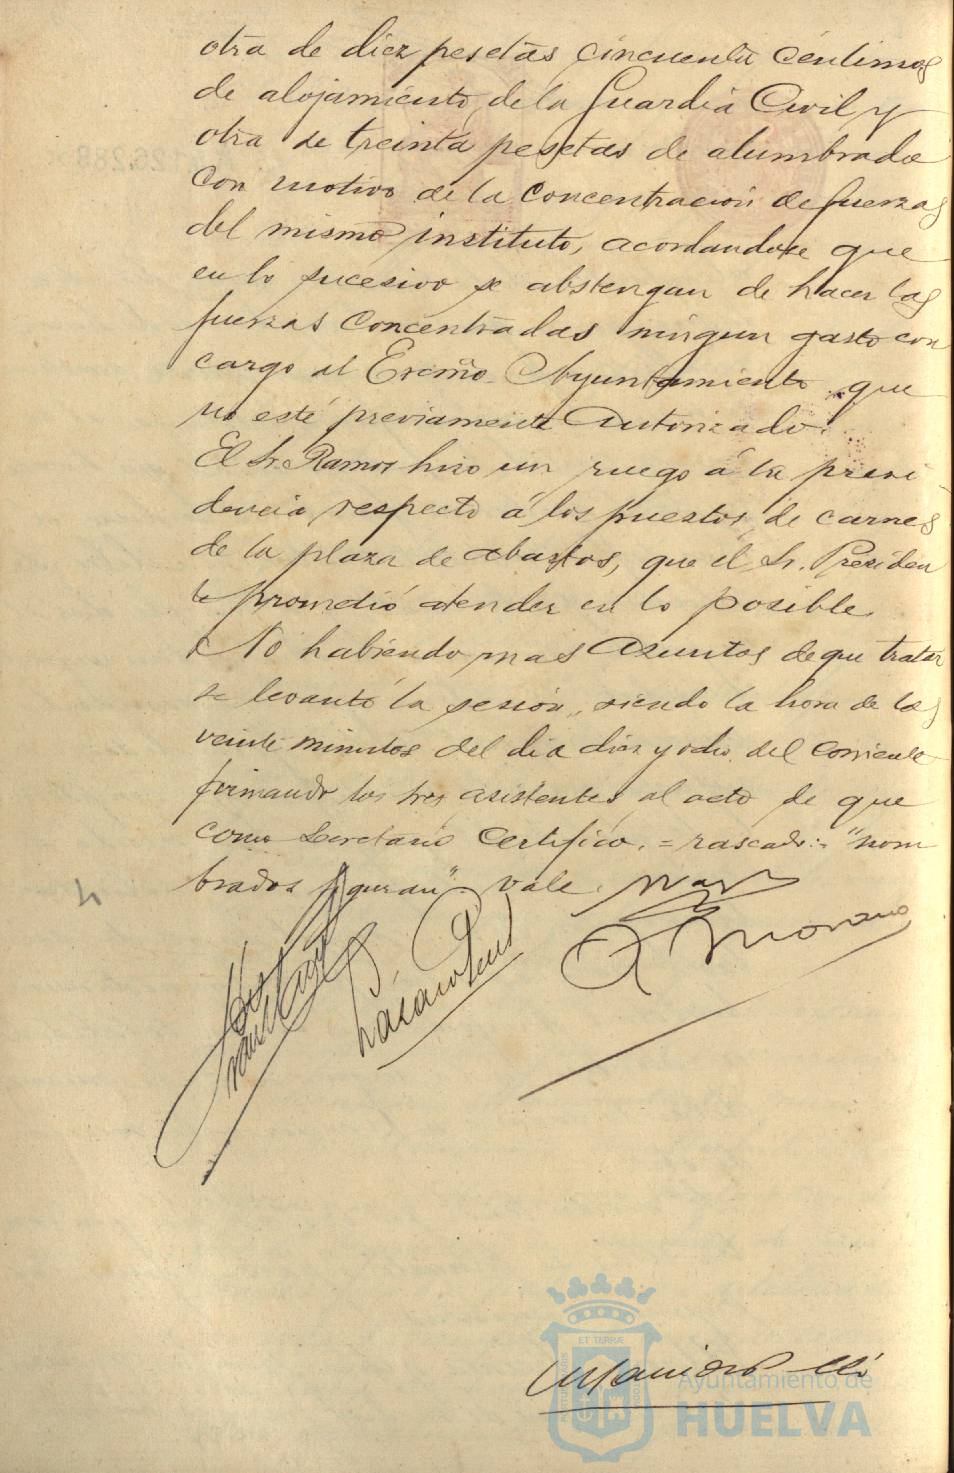 otra de diez pesetas cincuenta céntimos
de alojamiento de la Guardia Civil y
otra de treinta pesetas de alumbrado
con motivo de la concentración de fuerzas
del mismo instituto, acordandose que
en lo sucesivo se abstengan de hacer las
fuerzas concentradas ningun gasto con
cargo al Excmo. Ayuntamiento que
no esté previamente autorizado.
El Sr. Ramos hizo un ruego á la presi
dencia respecto á los puestos de carnes
de la plaza de abastos, que el Sr. Presiden
te prometió atender en lo posible.
No habiendo mas asuntos de que tratar
se levantó la sesión, siendo la hora de las
veinte minutos del dia diez y ocho del corriente
firmando los tres asistentes al acto de que
como Secretario certifico. = rascado: = "nom
brados figuran" vale.
A Moreno
Lázaro
ET TERRÆ
Ayuntamiento de
HUELVA